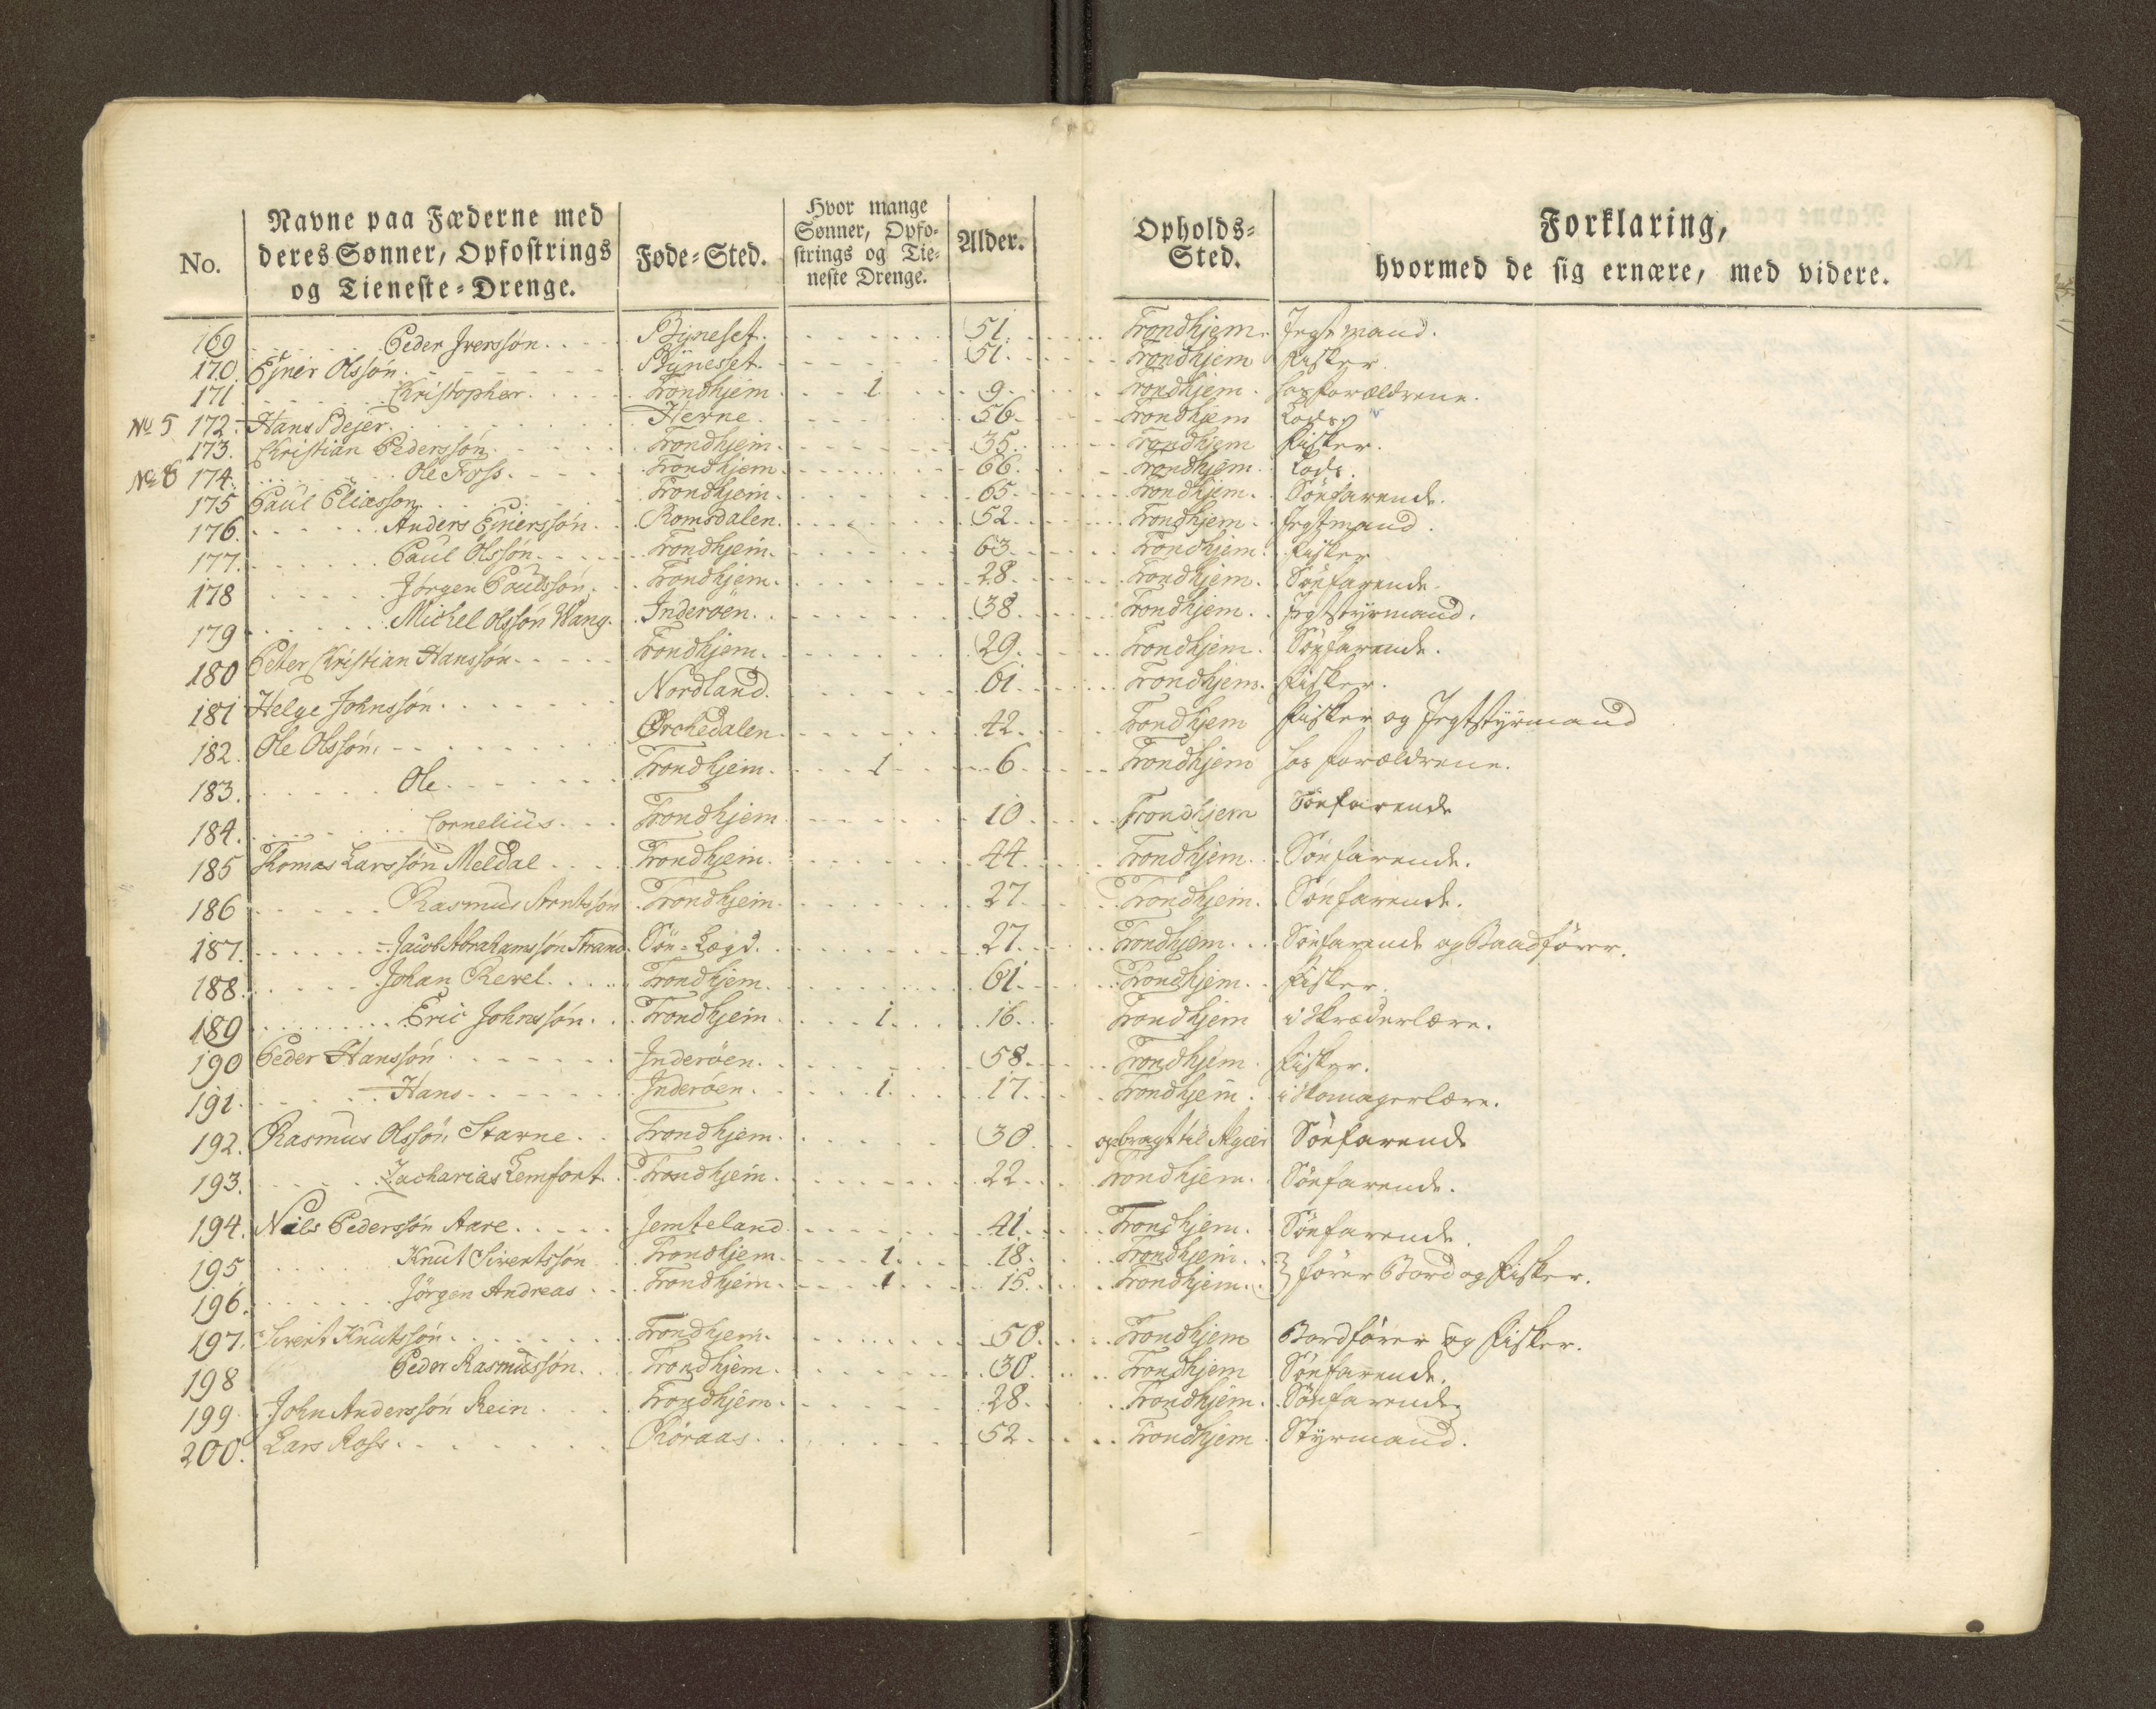 No.
Navne paa Fæderne med
deres Sønner, Opfostrings
og Tieneste-Drenge.
Føde-Sted.
Hvor mange
Sønner, Opfo-
strings og Tie-
neste Drenge.
Alder.
Opholds-
Sted.
Forklaring,
hvormed de sig ernære, med videre.
169 Peder Iverssøn Byneset 51 Trondhjem Jegtmand.
170 Ejner Olssøn Bynesset 51 Trondhjem Fisker
171 Christopher Trondhjem 1 9 Trondhjem hos forældrene.
No 5 172 Hans Hevne 56 Trondhjem Lods
173. Christian Pederssøn Trondhjem 35 Trondhjem Fisker.
No 8 174. Ole Foss Trondhjem 66 Trondhjem Lods.
175 Paul Eliasson Trondhjem 65 Trondhjem Söefarende.
176. Anders Ejnerssøn Romsdalen 52 Trondhjem Jegtmand.
177. Paul Olssøn Trondhjem 63 Trondhjem Fisker
178 Jørgen Paulssøn Trondhjem 28 Trondhjem Söefarende
179 Michel Olssøn Wang Inderøen 38 Trondhjem Jegtstyrmand.
180 Peter Christian Hanssøn Trondhjem 29 Trondhjem Söefarende.
181 Helge Johnssøn Nordland 61 Trondhjem Fisker.
182. Ole Olssøn Orchedalen 42 Trondhjem Fisker og Jegtstyrmand
183. Ole Trondhjem 1 6 Trondhjem hos forældrene.
184. Cornelius Trondhjem 10 Trondhjem Söefarende
185 Thomas Larssøn Meldal Trondhjem 44 Trondhjem Söefarende.
186 Rasmus Arntssøn Trondhjem 27 Trondhjem Söefarende.
187. Jacob Abrahamssøn Strand Söe-Lægd. 27 Trondhjem Söefarende og Baadfører.
188. Johan Revel Trondhjem 61 Trondhjem Fisker.
189 Eric Johnssøn Trondhjem 1 16 Trondhjem i Skræderlære.
190 Peder Hanssøn Inderøen 58 Trondhjem Fisker.
191. Hans Inderøen 1 17 Trondhjem i Skomagerlære.
192. Rasmus Olssøn Starne Trondhjem 30 opbragt til Algier Söefarende
193. Zacharias Lemfort Trondhjem 22 Trondhjem Söefarende.
194. Nils Pederssøn Aare Jemteland 41 Trondhjem Söefarende.
195 Knut Siventssøn Trondhjem 1 18 Trondhjem
196. Jörgen Andreas Trondhjem 1 15 Trondhjem } fører Bord og Fisker.
197. Sivent Knutssøn Trondhjem 50 Trondhjem Bordfører og Fisker.
198 Peder Rasmussøn Trondhjem 30 Trondhjem Söefarende.
199 John Anderssøn Rein Trondhjem 28 Trondhjem Söefarende
200. Lars Ross Röraas 52 Trondhjem Styrmand.